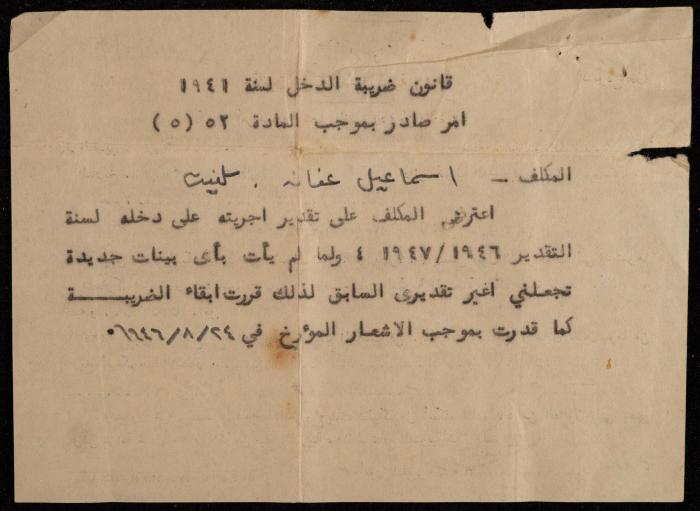 قانون ضريبة الدخل لسنة ١٩٤١
امر صادر بموجب المادة ٥٢ (٥)
المكلف - اسماعيل عفانه . سلفيت
اعترض المكلف على تقدير اجريته على دخله لسنة
التقدير ١٩٤٧/١٩٤٦ ٤ ولما لم يأت بأى بينات جديدة
تجعلني اغير تقديرى السابق لذلك قررت ابقاء الضريبـــــة
كما قدرت بموجب الاشعار المؤرخ في ٢٤/٨/